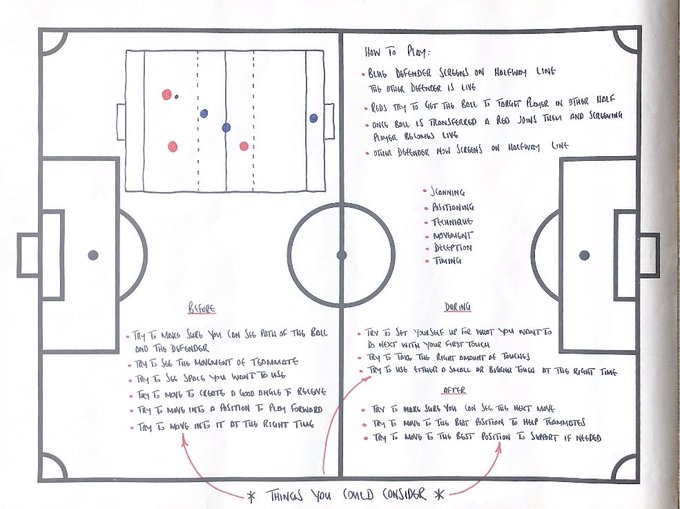 HOW TO PLAY:
• BLUE DEFENDER SCREENS ON HALFWAY LINE
THE OTHER DEFENDER IS LIVE
• REDS TRY TO GET THE BALL TO TARGET PLAYER IN OTHER HALF
• ONCE BALL IS TRANSFERRED A RED JOINS THEM AND SCREENING
PLAYER BECOMES LIVE
• OTHER DEFENDER NOW SCREENS ON HALFWAY LINE
• SCANNING
• POSITIONING
• TECHNIQUE
• MOVEMENT
• DECEPTION
• TIMING
BEFORE
• TRY TO MAKE SURE YOU CAN SEE BOTH OF THE BALL
AND THE DEFENDER
• TRY TO SEE THE MOVEMENT OF TEAMMATE
• TRY TO SEE SPACE YOU WANT TO USE
• TRY TO MOVE TO CREATE A GOOD ANGLE TO RECEIVE
• TRY TO MOVE INTO A POSITION TO PLAY FORWARD
• TRY TO MOVE INTO IT AT THE RIGHT TIME
DURING
• TRY TO SET YOURSELF UP FOR WHAT YOU WANT TO
DO NEXT WITH YOUR FIRST TOUCH
• TRY TO TAKE THE RIGHT AMOUNT OF TOUCHES
• TRY TO USE EITHER A SMALL OR BIGGER TOUCH AT THE RIGHT TIME
AFTER
• TRY TO MAKE SURE YOU CAN SEE THE NEXT MOVE
• TRY TO MOVE TO THE BEST POSITION TO HELP TEAMMATES
• TRY TO MOVE TO THE BEST POSITION TO SUPPORT IF NEEDED
* THINGS YOU COULD CONSIDER *